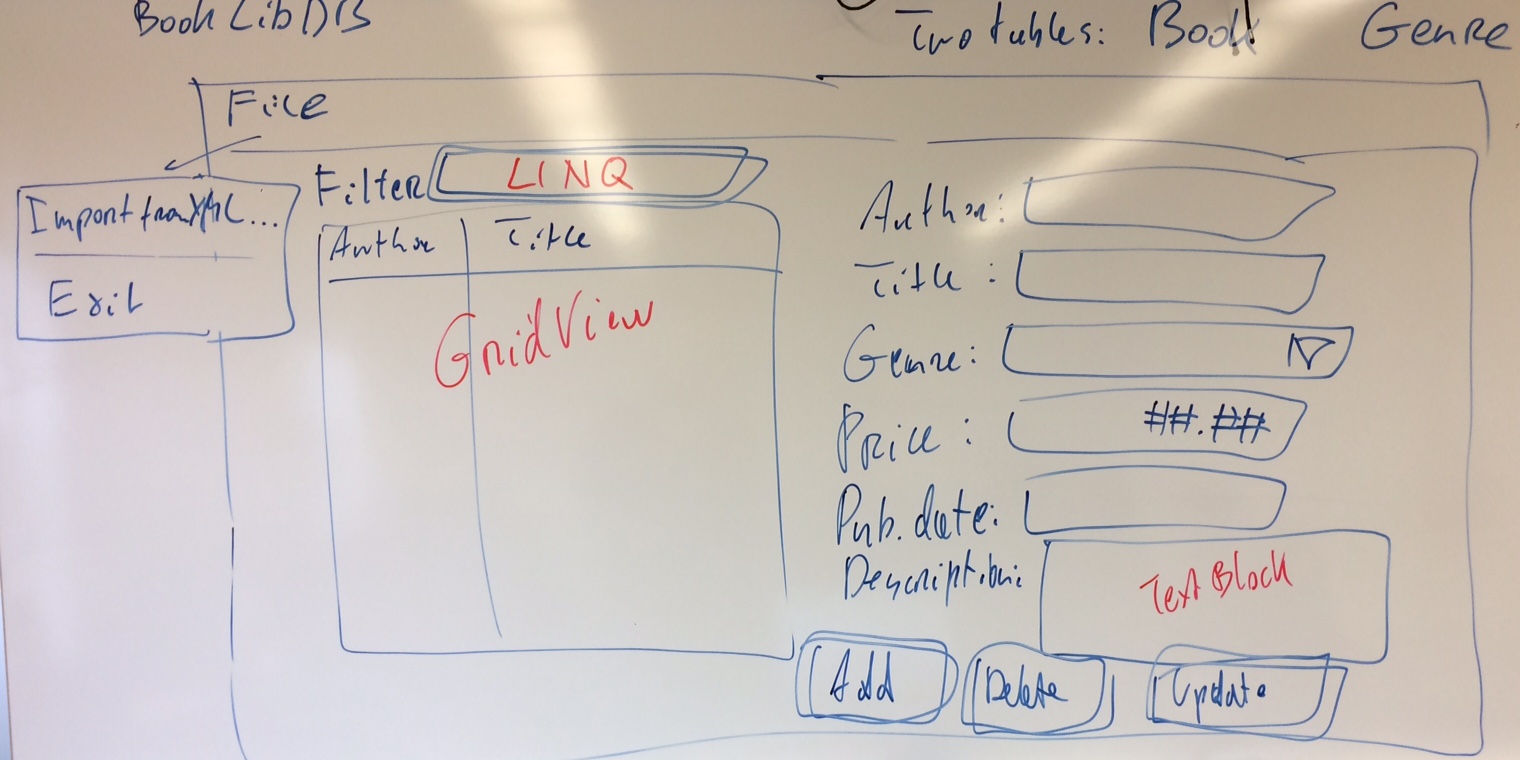 Book Lib DB
Two tables: Book Genre
File
Import from XML...
Exit
Filter LINQ
Author Title
GridView
Author:
Title :
Genre:
Price : ##.##
Pub. date:
Description:
Text Block
Add Delete Update